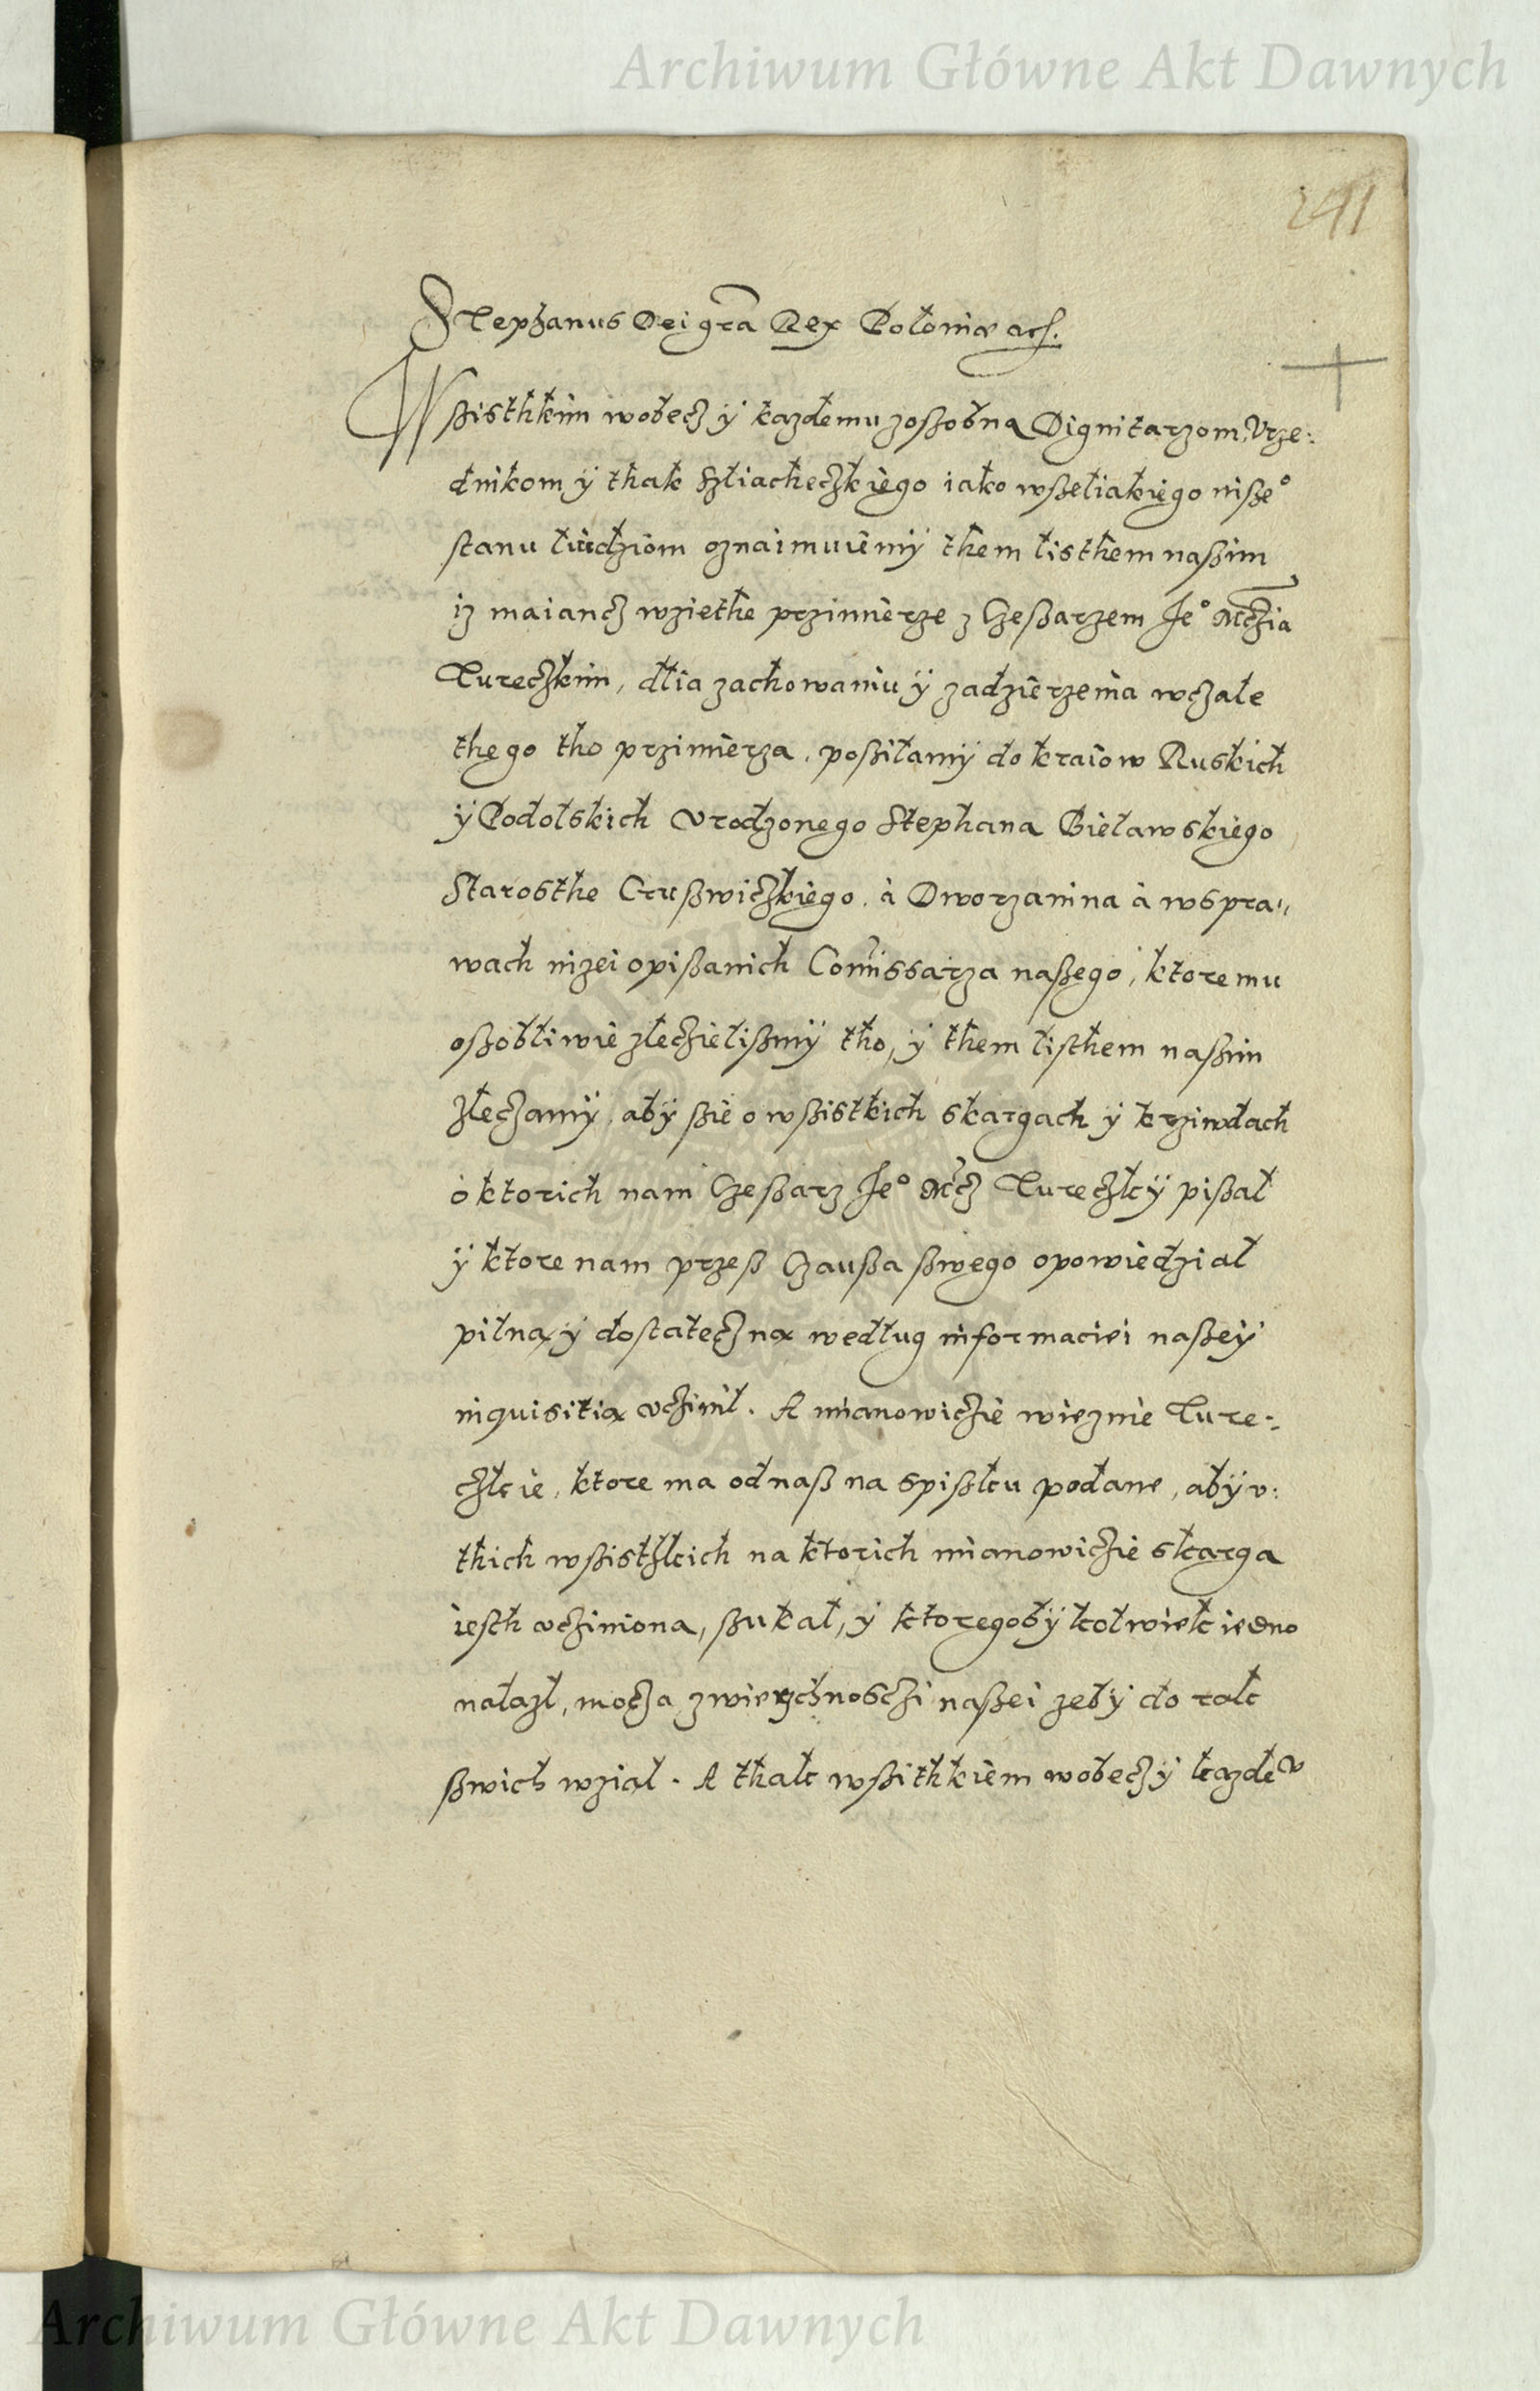 Archiwum Główne Akt Dawnych
241
Stephanus Dei gra Rex Poloniæ etc.
Wßisthkim wobecz ÿ kazdemu zoßobna Dignitarzom, Vrze:
dnikom ÿ thak Szliacheczkiego iako wßeliakiego nisze°
stanu ludziom oznaimuiemÿ them listhem naßim
iz maiancz wziethe przimierze z Czeßarzem Je° Mczia
Tureczkim, dlia zachowaniu ÿ zadzierzenia wczale
thego tho przimierza, poßilamÿ do kraiow Ruskich
ÿ Podolskich Vrodzonego Stephana Bielawskiego
Starosthe Crußwiczkiego, à Dworzanina à wspra„
wach nizei opißanich Comissarza naßego, ktoremu
oßobliwie zleczielißmÿ tho, ÿ them listhem naßim
zleczamÿ, abÿ ßie o wßistkich skargach ÿ krziwdach
o ktorich nam Czeßarz Je° Mcz Tureczkÿ pißal
ÿ ktore nam przeß Czaußa ßwego opowiedzial
pilną ÿ dostateczną według informaciei naßeÿ
inquisitią vczinil. A mianowiczie wieznie Ture:
czkie, ktore ma od naß na spißku podane, abÿ v:
thich wßisthkich na ktorich mianowiczie skarga
iesth vcziniona, ßukal, ÿ ktoregobÿ kolwiek iedno
nalazl, mocza zwierzchnosczi naßei zebÿ do rak
ßwich wzial. A thak wßithkiem wobecz ÿ kazdev
Archiwum Główne Akt Dawnych